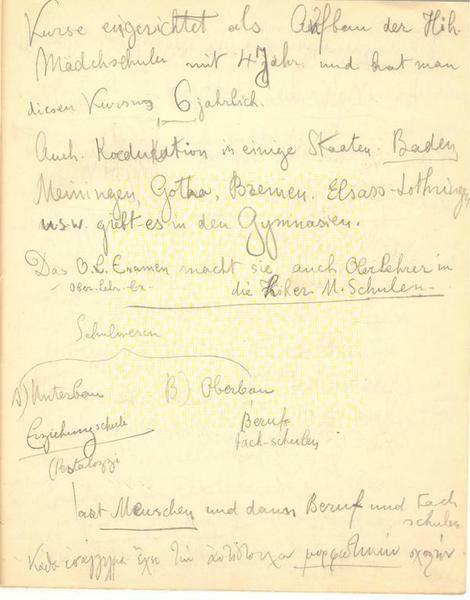 Kurse eingerichtet als Aufbau der Höh.
Mädchschulen mit 4 Jahr. und hat man
diesen Kursus 6 jahrlich.
Auch Koedukation in einige Staaten. Baden,
Meiningen, Gotha, Bremen. Elsass-Lothringen
u.s.w. giebt es in den Gymnasien.
Das O.L. Examen macht sie auch Oberlehrer in
Ober. Lehr. Ex- die Höher. M. Schulen.
Schulwesen
A) Unterbau B) Oberbau
Erziehungschule Beruf
Fach-schulen
(Pestalozzi
Menschen und dann Beruf und Fach
schulen
Κάθε ἐπάγγελμα ἔχει τὴν ἀντίστοιχον μορφωτικὴν σχολήν.